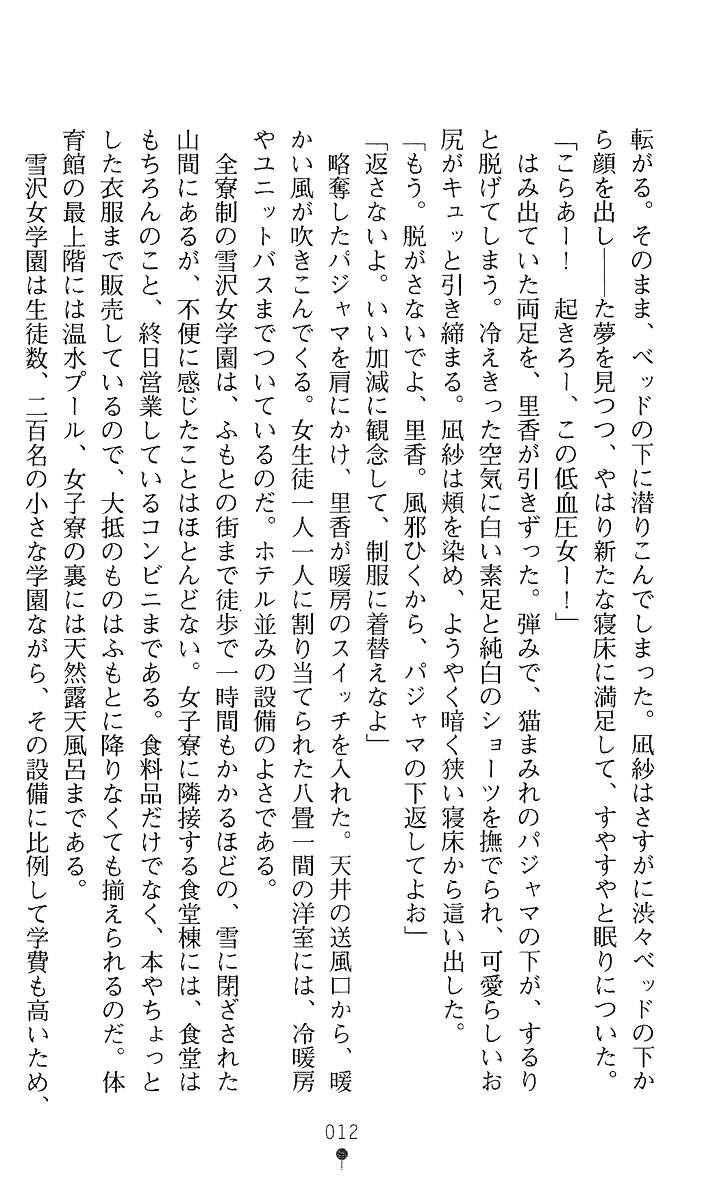 転がる。そのまま、ベッドの下に潜りこんでしまった。凪紗はさすがに渋々ベッドの下か
ら顔を出し――た夢を見つつ、やはり新たな寝床に満足して、すやすやと眠りについた。
「こらあー！　起きろー、この低血圧女ー！」
　はみ出ていた両足を、里香が引きずった。弾みで、猫まみれのパジャマの下が、するり
と脱げてしまう。冷えきった空気に白い素足と純白のショーツを撫でられ、可愛らしいお
尻がキュッと引き締まる。凪紗は頬を染め、ようやく暗く狭い寝床から這い出した。
「もう。脱がさないでよ、里香。風邪ひくから、パジャマの下返してよお」
「返さないよ。いい加減に観念して、制服に着替えなよ」
　略奪したパジャマを肩にかけ、里香が暖房のスイッチを入れた。天井の送風口から、暖
かい風が吹きこんでくる。女生徒一人一人に割り当てられた八畳一間の洋室には、冷暖房
やユニットバスまでついているのだ。ホテル並みの設備のよさである。
　全寮制の雪沢女学園は、ふもとの街まで徒歩で一時間もかかるほどの、雪に閉ざされた
山間にあるが、不便に感じたことはほとんどない。女子寮に隣接する食堂棟には、食堂は
もちろんのこと、終日営業しているコンビニまである。食料品だけでなく、本やちょっと
した衣服まで販売しているので、大抵のものはふもとに降りなくても揃えられるのだ。体
育館の最上階には温水プール、女子寮の裏には天然露天風呂まである。
　雪沢女学園は生徒数、二百名の小さな学園ながら、その設備に比例して学費も高いため、
012